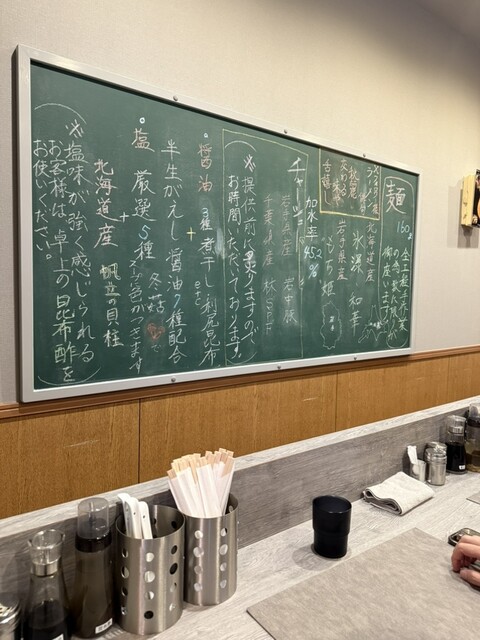 麺 160g
全工程手作業
の為、数に限りが
御座います
北海道産
氷潔 和華
岩手県産
もち姫
加水率 45.2%
チャーシュー
岩手県産 岩中豚
千葉県産 林SPF
※提供前に
お時間いただいております。
醤油
3種煮干し 利尻昆布 etc
+
半生がえし 醤油7種配合
塩
厳選5種 冬菇
+
北海道産 帆立の貝柱
※塩味が強く感じられる
お客様は、卓上の昆布酢を
お使いください。